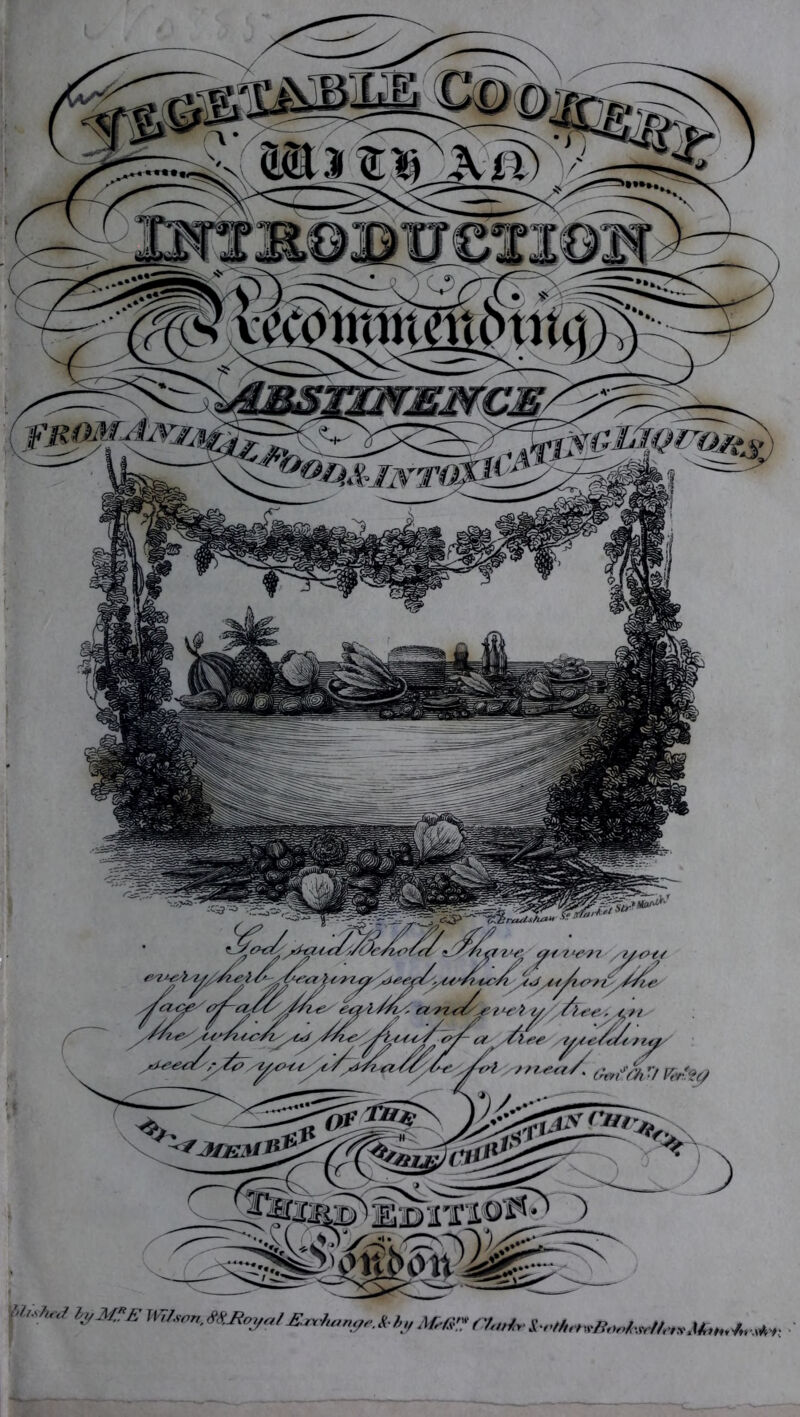 VEGETABLE COOKERY,
WITH AN
INTRODUCTION
Recommending
ABSTINENCE
FROM ANIMAL FOOD, & INTOXICATING LIQUORS,
C. Bradshaw Sc. Market Str.t Manch.r
God said, Behold I have given you
every herb bearing seed, which is upon the
face of all the earth, and every tree, in
the which is the fruit of a tree yielding
seed; to you it shall be for meat. Gen.s Ch.r 1 Ver.s 29
BY A MEMBER OF THE BIBLE CHRISTIAN CHURCH.
THIRD EDITION.
London
blished by M.R E Wilson, 88, Royal Exchange, & by Mess.rs Clarke & others Booksellers Manchester.